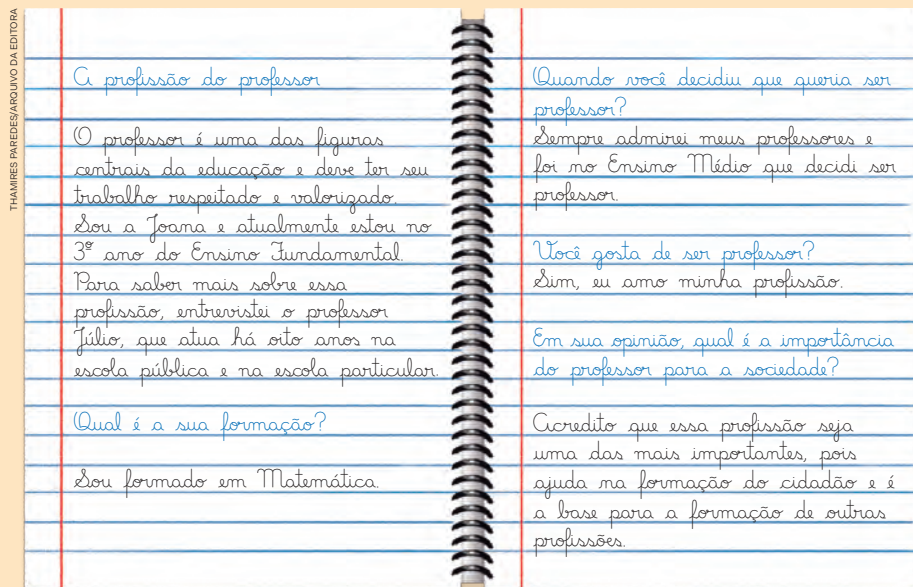 THAMIRES PAREDES/ARQUIVO DA EDITORA
A profissão do professor
O professor é uma das figuras
centrais da educação e deve ter seu
trabalho respeitado e valorizado.
Sou a Joana e atualmente estou no
3º ano do Ensino Fundamental.
Para saber mais sobre essa
profissão, entrevistei o professor
Júlio, que atua há oito anos na
escola pública e na escola particular.
Qual é a sua formação?
Sou formado em Matemática.
Quando você decidiu que queria ser
professor?
Sempre admirei meus professores e
foi no Ensino Médio que decidi ser
professor.
Você gosta de ser professor?
Sim, eu amo minha profissão.
Em sua opinião, qual é a importância
do professor para a sociedade?
Acredito que essa profissão seja
uma das mais importantes, pois
ajuda na formação do cidadão e é
a base para a formação de outras
profissões.